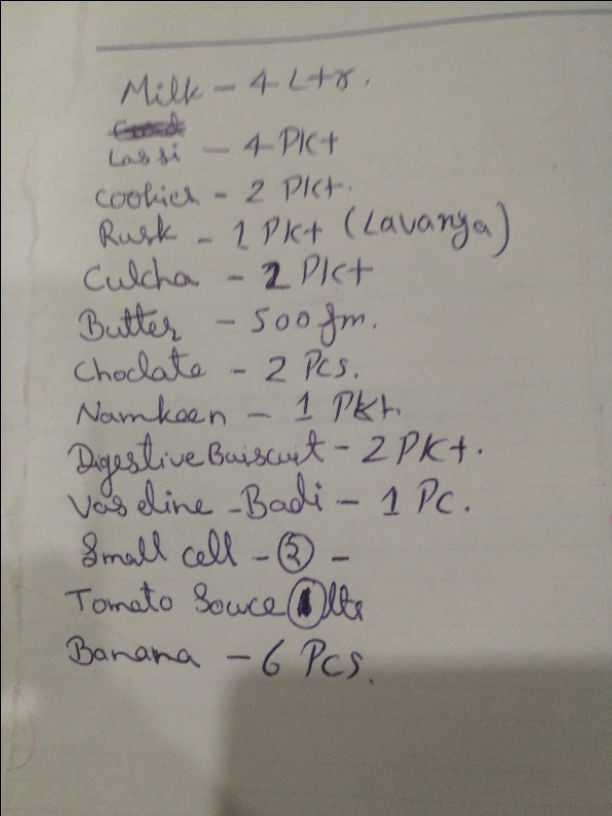 Milk - 4 Ltr.
Lassi - 4 Pkt
Cookies - 2 Pkt.
Rusk - 1 Pkt (Lavanya)
Culcha - 2 Pkt
Butter - 500 gm.
Choclate - 2 Pcs.
Namkeen - 1 Pkt.
Digestive Buiscuit - 2 Pkt.
Vaseline - Badi - 1 Pc.
Small cell - 2 -
Tomato Souce 1 ltr
Banana - 6 Pcs.